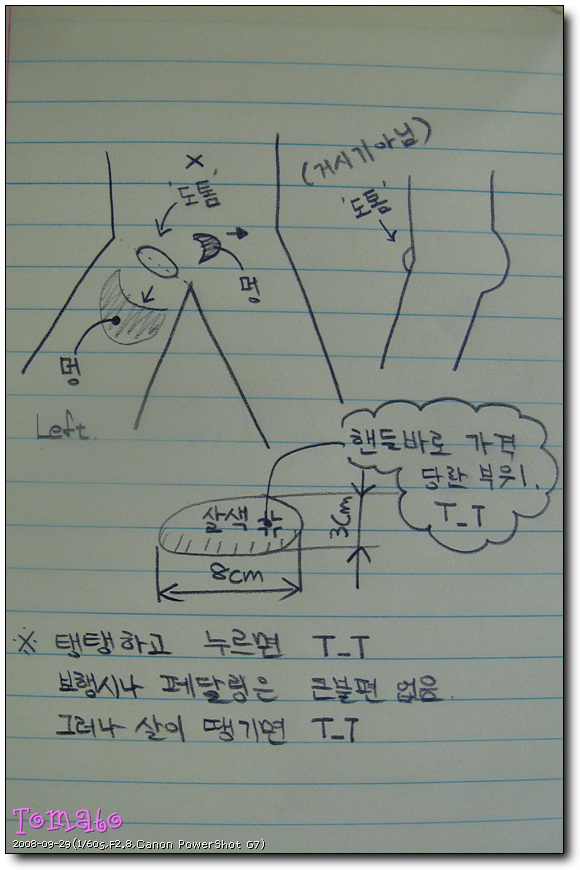 (거시기아님)
X
'도톰'
'도톰'
멍
멍
Left.
핸들바로 가격
당한 부위.
T_T
살색 혹
3cm
8cm
※ 탱탱하고 누르면 T_T
보행시나 페달링은 큰불편 없음.
그러나 살이 땡기면 T_T
Tomato
2008-09-29(1/60s,F2.8,Canon PowerShot G7)